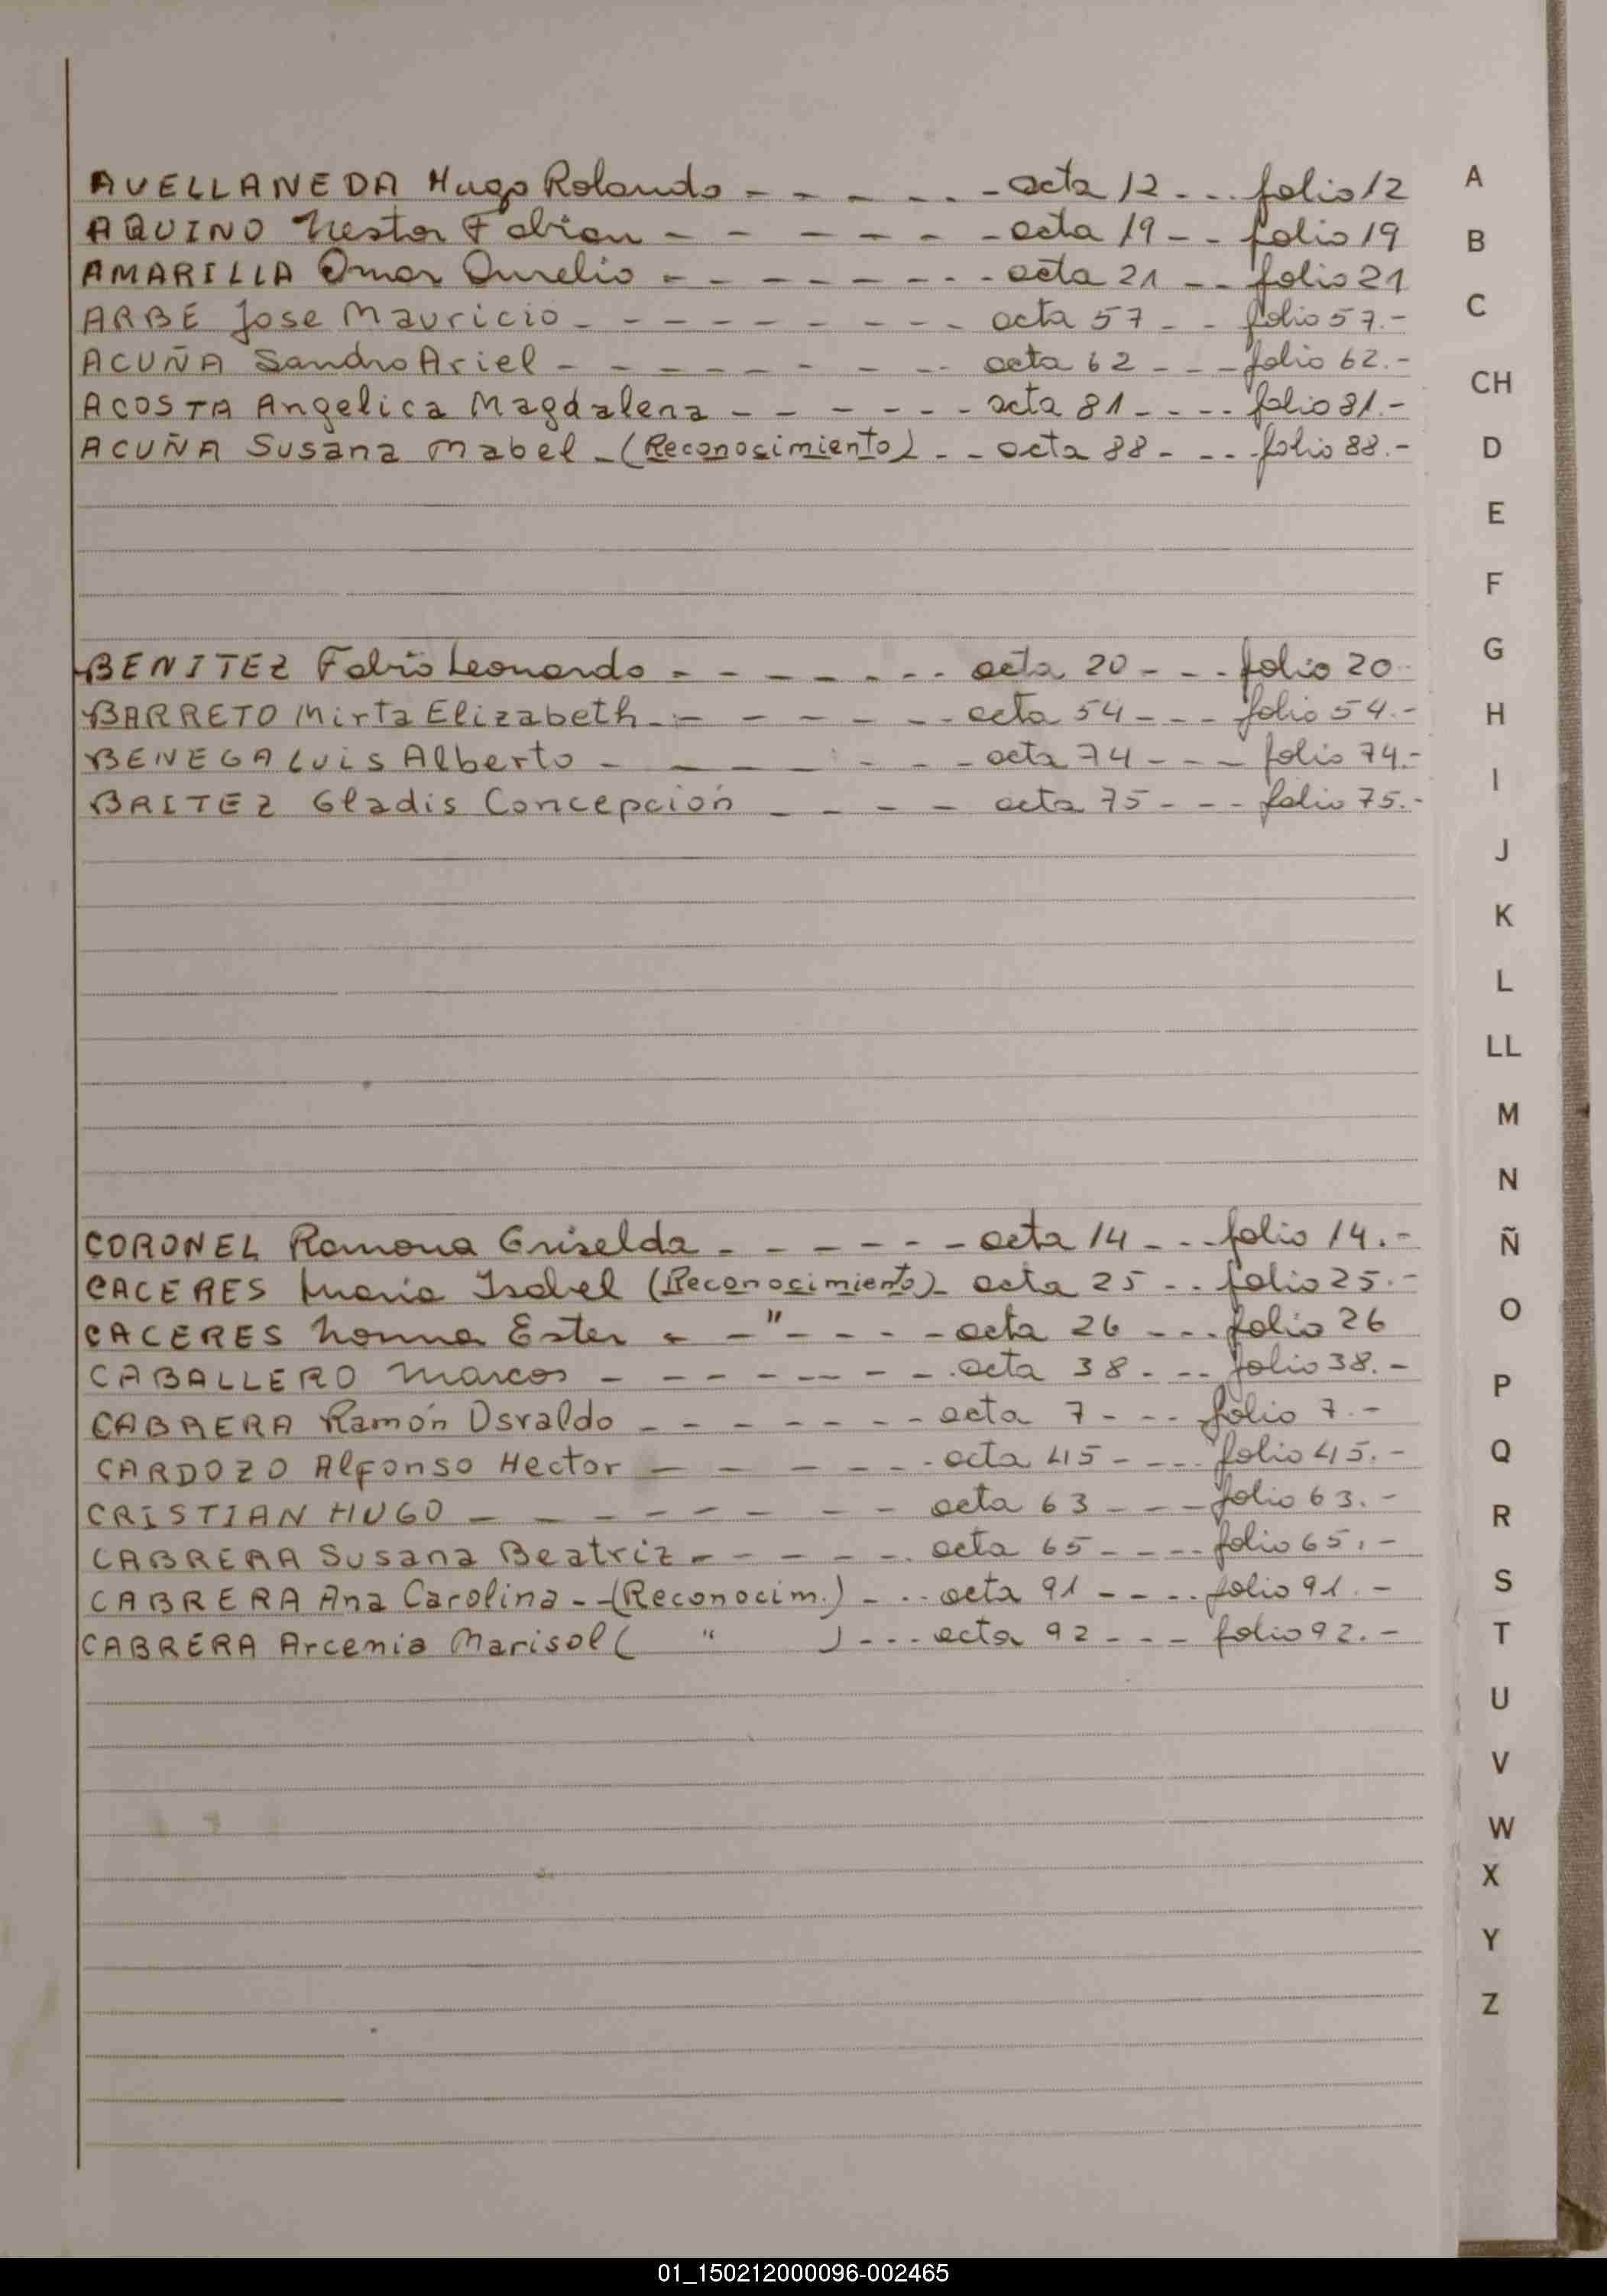 AVELLANEDA Hugo Rolando - - - - - - acta 12 - - - folio 12
AQUINO Nestor Fabian - - - - - - - acta 19 - - folio 19
AMARILLA Omar Aurelio - - - - - - - - acta 21 - - folio 21
ARBE Jose Mauricio - - - - - - - - - acta 57 - - folio 57.-
ACUÑA Sandro Ariel - - - - - - - - - acta 62 - - - folio 62.-
ACOSTA Angelica Magdalena - - - - - - acta 81 - - - - folio 81.-
ACUÑA Susana Mabel - (Reconocimiento) - - acta 88 - - - - folio 88.-
BENITEZ Fabio Leonardo - - - - - - - acta 20 - - - folio 20
BARRETO Mirta Elizabeth - - - - - - - acta 54 - - - folio 54.-
BENEGA Luis Alberto - - - - - - - acta 74 - - - folio 74.-
BAITEZ Gladis Concepción - - - - acta 75 - - - folio 75.-
CORONEL Ramona Griselda - - - - - - - acta 14 - - - folio 14.-
CACERES Maria Isabel (Reconocimiento) - acta 25 - - folio 25.-
CACERES Norma Ester - - " - - - - acta 26 - - - folio 26
CABALLERO Marcos - - - - - - - - acta 38 - - - folio 38.-
CABRERA Ramón Osvaldo - - - - - - - acta 7 - - - folio 7.-
CARDOZO Alfonso Hector - - - - - - - acta 45 - - - folio 45.-
CRISTIAN HUGO - - - - - - - - - acta 63 - - - folio 63.-
CABRERA Susana Beatriz - - - - - - acta 65 - - - - folio 65.-
CABRERA Ana Carolina - - (Reconocim.) - - - acta 91 - - - - folio 91.-
CABRERA Arcenia Marisol ( " ) - - - acta 92 - - - folio 92.-
A
B
C
CH
D
E
F
G
H
I
J
K
L
LL
M
N
Ñ
O
P
Q
R
S
T
U
V
W
X
Y
Z
01_150212000096-002465